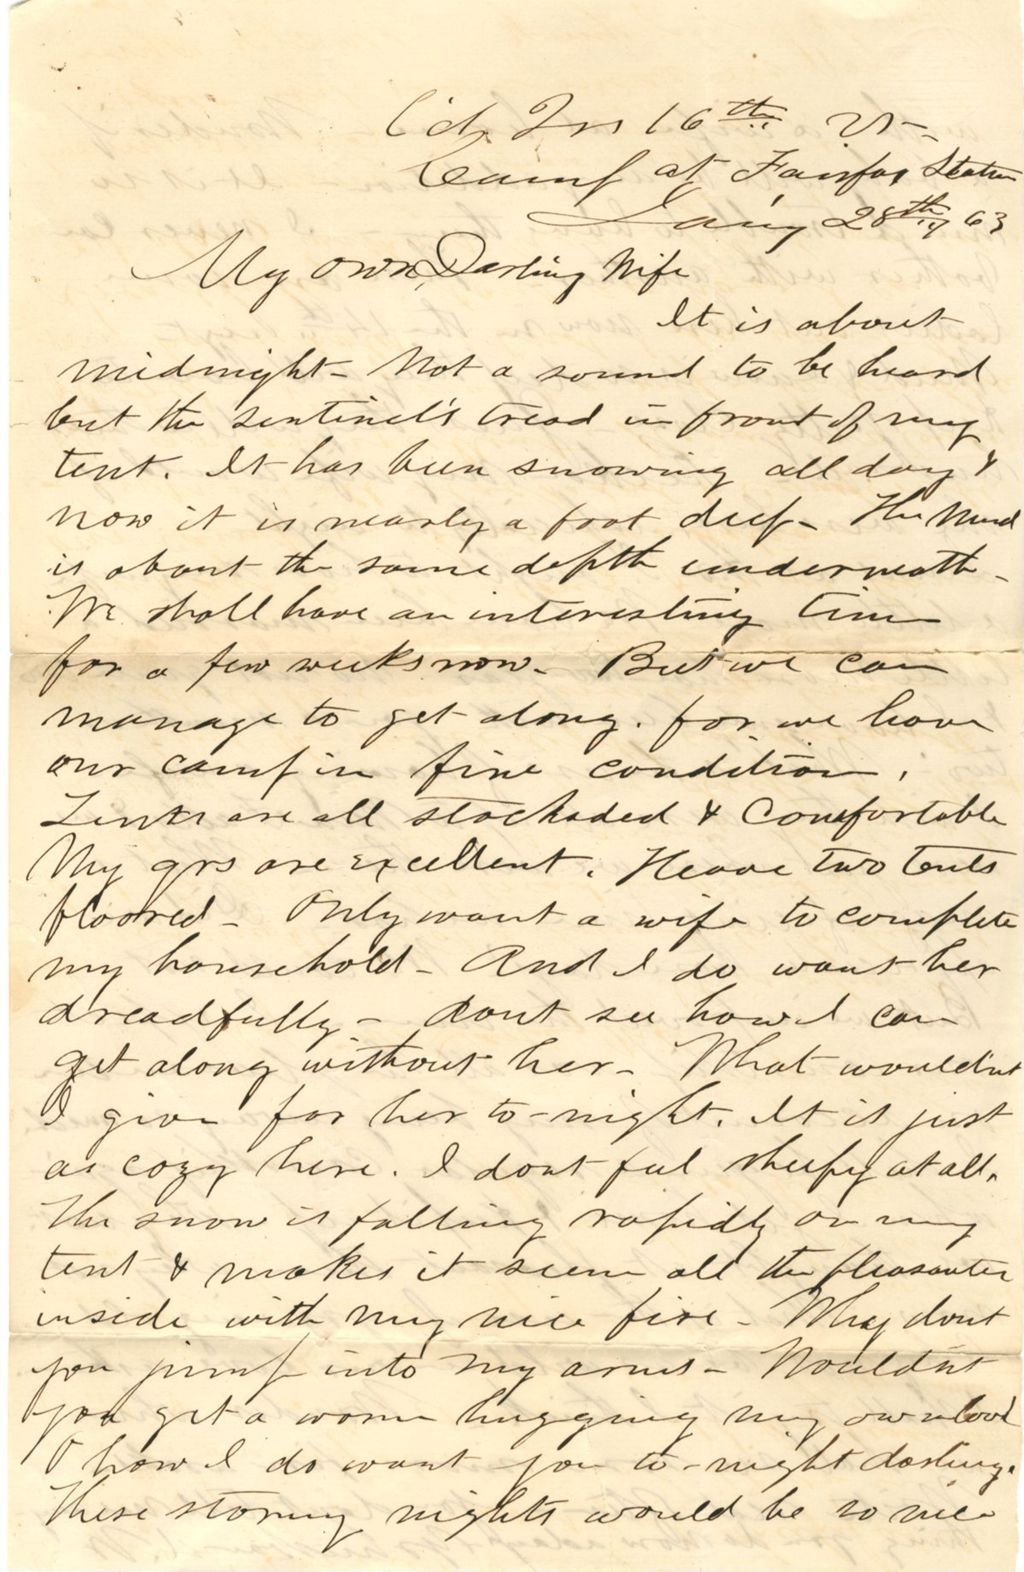 Hd. Qrs 16th Vt.
Camp at Fairfax Station
Jan'y 28th, 63
My own Darling Wife
It is about
midnight - Not a sound to be heard
but the sentinel's tread in front of my
tent. It has been snowing all day &
now it is nearly a foot deep - The Mud
is about the same depth underneath -
We shall have an interesting time
for a few weeks now - But we can
manage to get along. for we have
our camp in fine condition.
Tents are all stockaded & Comfortable
My qrs are excellent. Heave two tents
floored - Only want a wife to complete
my household - And I do want her
dreadfully - dont see how I can
get along without her - What wouldnt
I give for her to-night. It is just
as cozy here. I dont feel sleepy at all.
The snow is falling rapidly on my
tent & makes it seem all the pleasanter
inside with my nice fire - Why dont
you jump into my arms - Wouldnt
you get a warm hugging my own love
O how I do want you to-night darling.
These stormy nights would be so nice